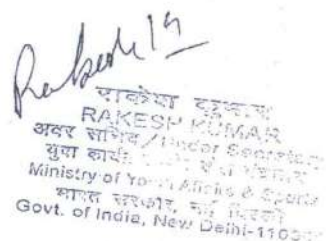 राकेश कुमार
RAKESH KUMAR
अवर सचिव / Under Secretary
युवा कार्य
Ministry of Youth Affairs & Sports
भारत सरकार, नई दिल्ली
Govt. of India, New Delhi-1100